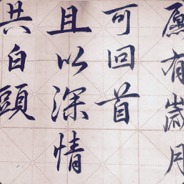 愿有歲月
可回首
且以深情
共白頭